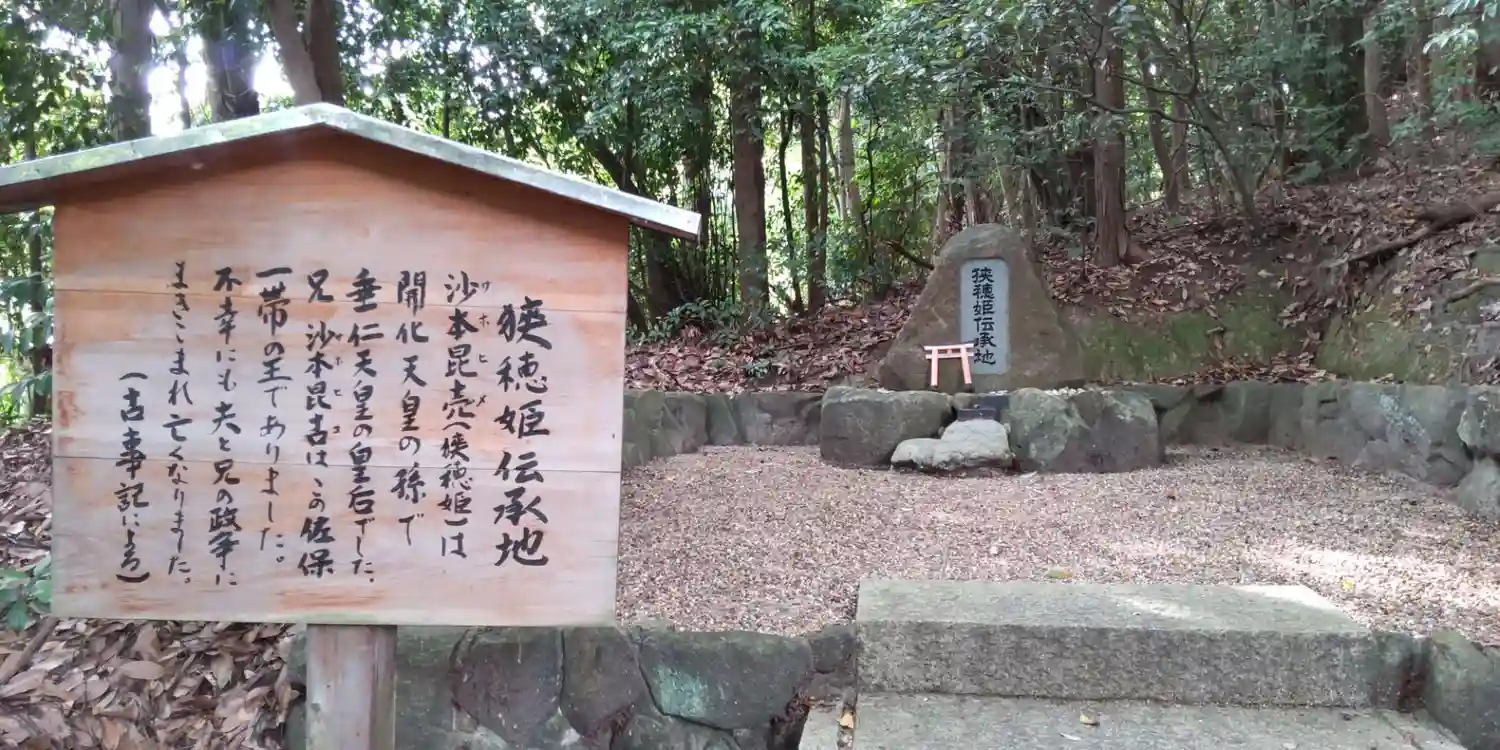 狹穂姫伝承地
沙本昆売(狭穂姫)は
サホヒメ
開化天皇の孫で
垂仁天皇の皇后でした。
兄 沙本昆古は、この佐保
サホヒコ
一帯の王でありました。
不幸にも夫と兄の政争に
まきこまれ亡くなりました。
(古事記による)
狹穂姫伝承地